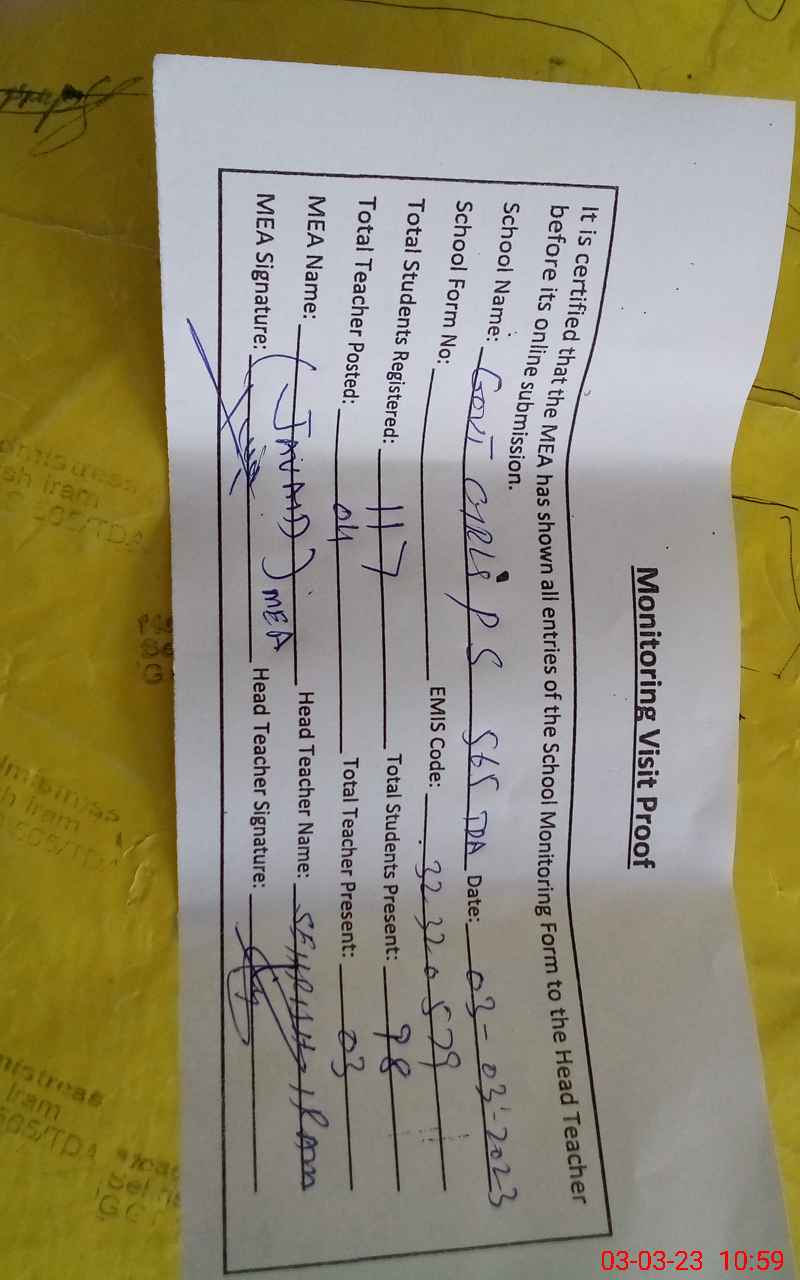 Monitoring Visit Proof
It is certified that the MEA has shown all entries of the School Monitoring Form to the Head Teacher
before its online submission.
School Name: GOVT GIRLS PS 565 TDA Date: 03-03-2023
School Form No: EMIS Code: 32320579
Total Students Registered: 117 Total Students Present: 98
Total Teacher Posted: 04 Total Teacher Present: 03
MEA Name: (JAVAID) MEA Head Teacher Name: SEHRISH IRAM
MEA Signature: Head Teacher Signature:
sh Iram
Iram
565/TDA
03-03-23 10:59